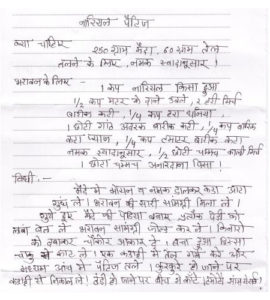 नारियल पैटिज
क्या चाहिए
250 ग्राम मैदा, 60 ग्राम तेल
तलने के लिए, नमक स्वादानुसार।
भरावन के लिए -
1 कप नारियल किसा हुआ
1/2 कप मटर के दाने उबले, 2 हरी मिर्च
बारीक कटी, 1/4 कप हरा धनिया,
1 छोटी गांठ अदरक बारीक कटी, 1/4 कप बारीक
कटा प्याज, 1/4 कप टमाटर बारीक कटा
नमक स्वादानुसार, 1/2 छोटी चम्मच काली मिर्च
1 छोटा चम्मच अनारदाना पिसा।
विधी :-
मैदे में मोयन व नमक डालकर कड़ा आटा
गूंध लें। भरावन की सारी सामग्री मिला लें।
गूंधे हुए मैदे की पेडियां बनाए प्रत्येक पेडी को
लंबा बेल लें भरावन सामग्री और कर लें। किनारों
को दबाकर चौकोर आकार दें। बचा हुआ हिस्सा
चाकू से काट लें। एक कढ़ाही में तेल गर्म करें और
मध्यम आंच में पैटिज तलें। कुरकुरे हो जाने पर
कढ़ाही से निकाल लें। ठंडी हो जाने पर बीच से काटें